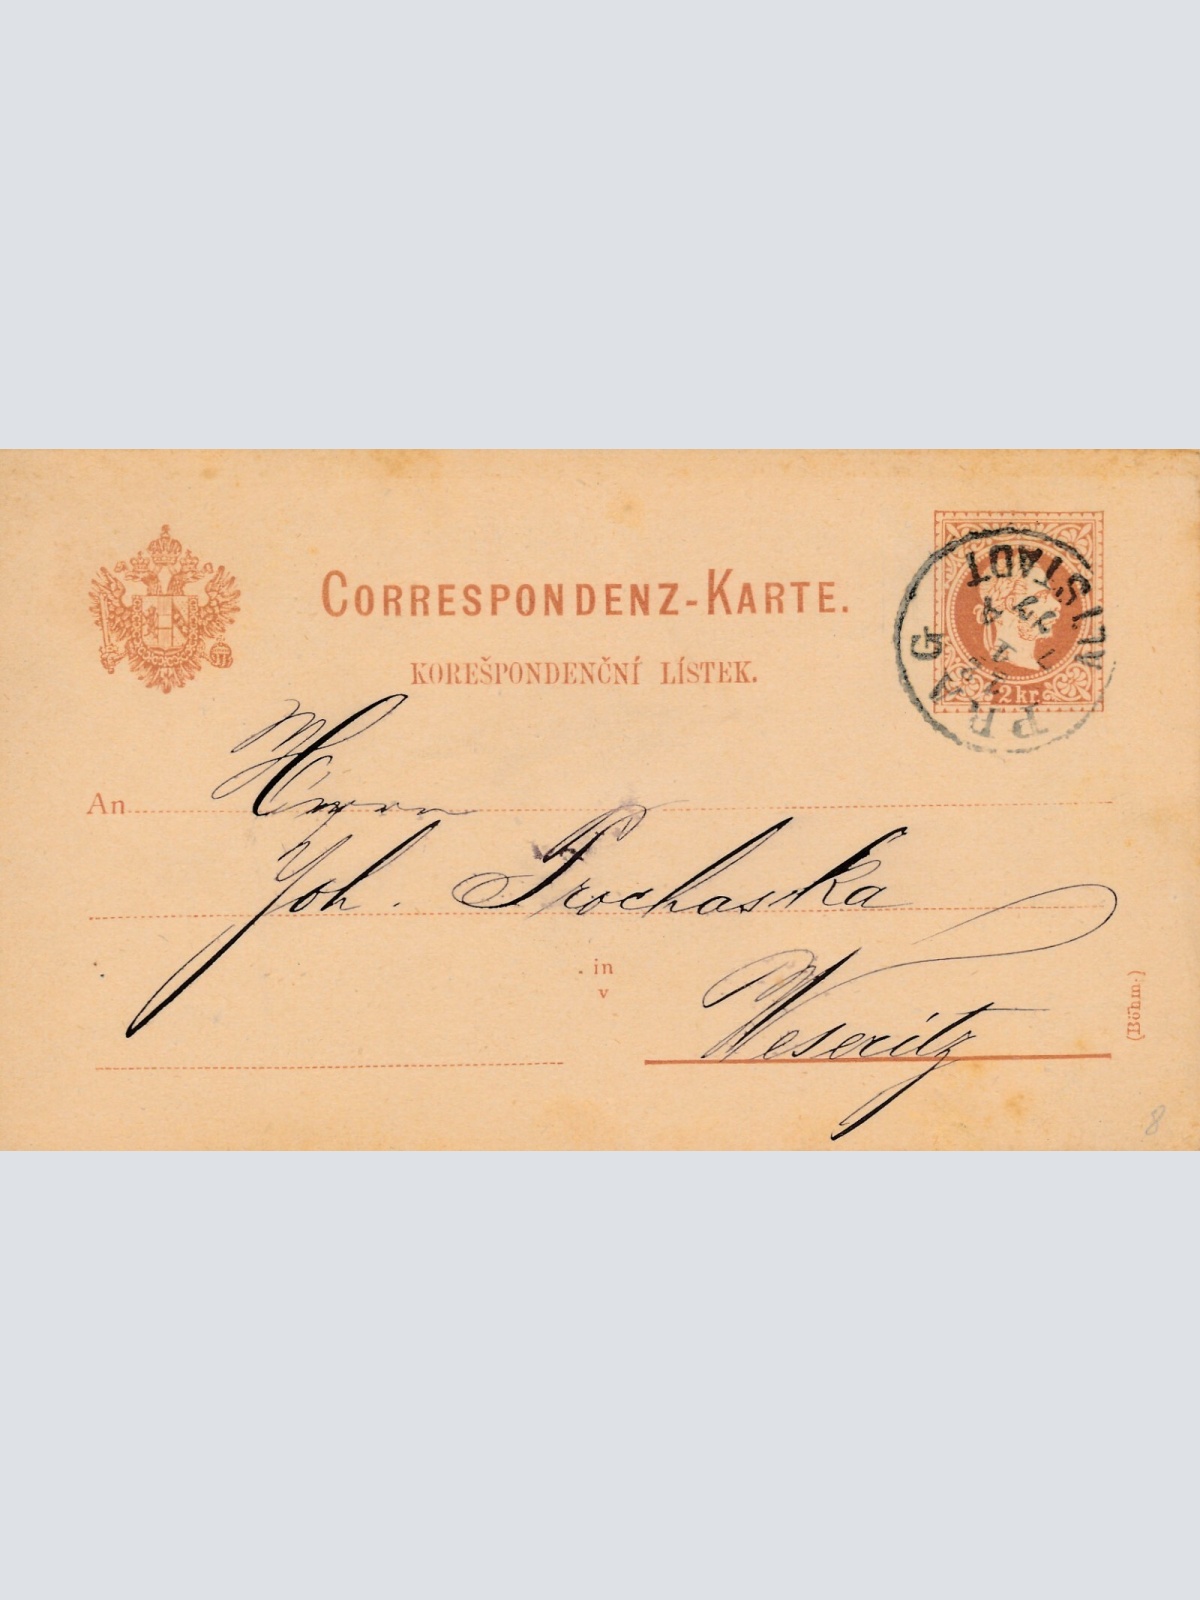 CORRESPONDENZ-KARTE.
KOREŠPONDENČNÍ LÍSTEK.
2 kr.
PRAG ALTSTADT
An Herrn
Joh. Prochaska
in
v
Weseritz
(Böhm.)
8